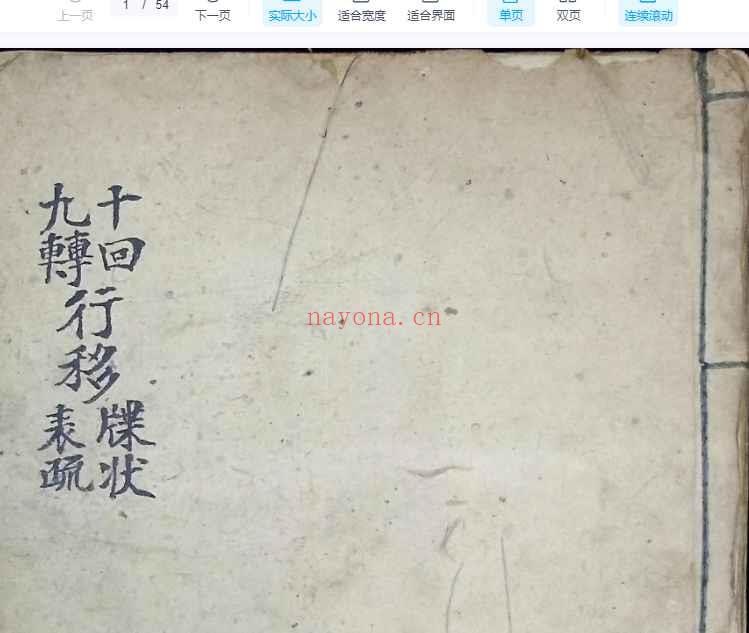 上一页
1 / 54
下一页
实际大小
适合宽度
适合界面
单页
双页
连续滚动
十回
九轉
行移
牒状
表疏
nayona.cn